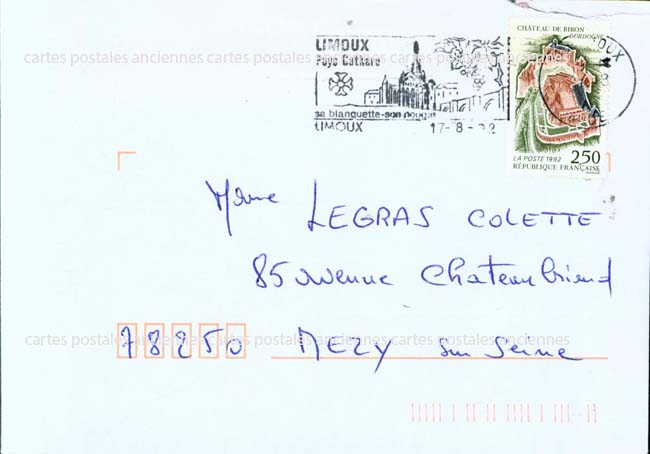 CHÂTEAU DE BIRON
DORDOGNE
LIMOUX
Pays Cathare
cartes postales anciennes cartes postales anciennes cartes postales anciennes
sa blanquette-son nougat
LIMOUX 17-8-92
LA POSTE 1992 2,50
RÉPUBLIQUE FRANÇAISE
Mme LEGRAS COLETTE
85 Avenue Chateaubriand
cartes postales anciennes cartes postales anciennes cartes postales anciennes
78250 MEZY sur Seine